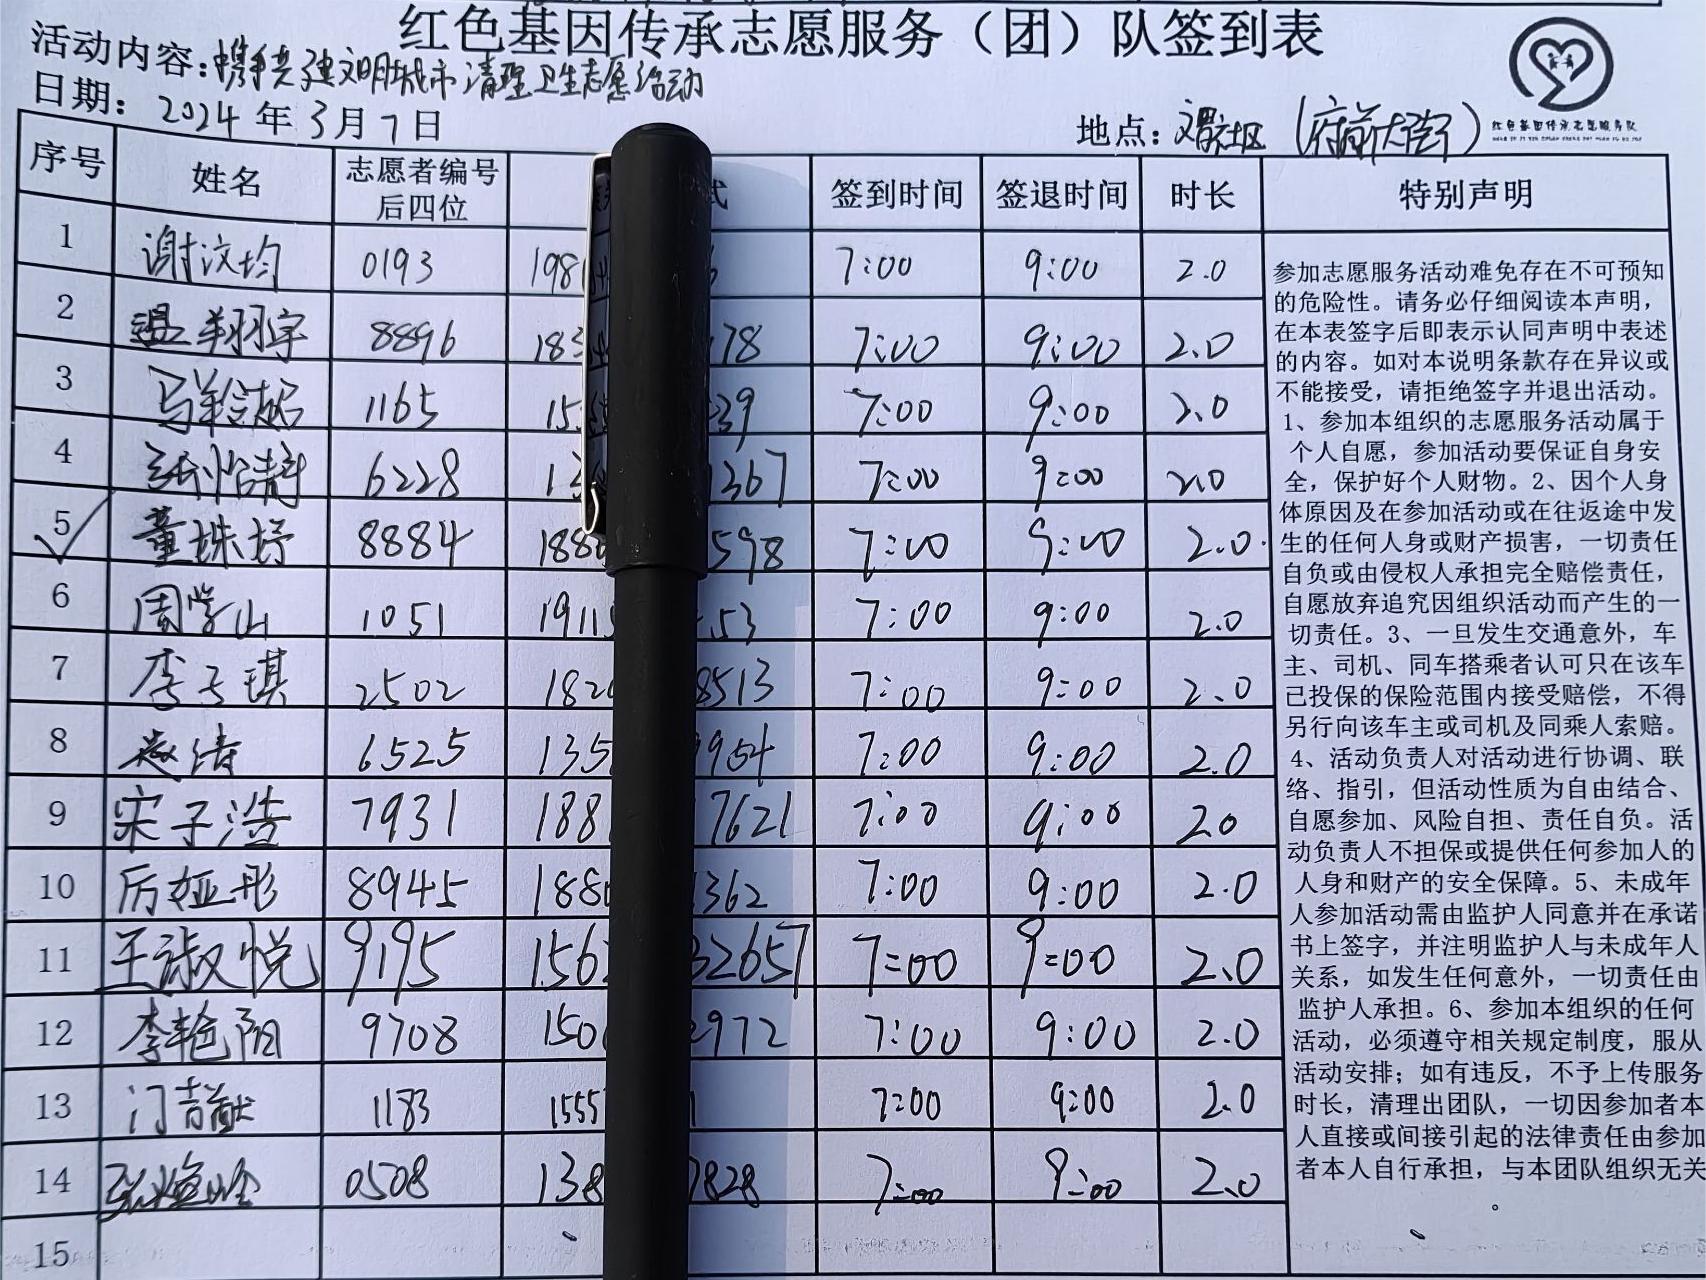 红色基因传承志愿服务（团）队签到表
活动内容：携手共建文明城市清理卫生志愿活动
日期：2024年3月7日
地点：社区（府前大街）
红色基因传承志愿服务队
序号 姓名 志愿者编号后四位 式 签到时间 签退时间 时长 特别声明
1 谢汶均 0193 198 7:00 9:00 2.0
2 温翔宇 8896 183 78 7:00 9:00 2.0
3 马 1165 15 39 7:00 9:00 2.0
4 张怡静 6228 13 367 7:00 9:00 2.0
5 董姝妤 8884 188 598 7:00 9:00 2.0
6 周学山 1051 1911 53 7:00 9:00 2.0
7 李子琪 2502 182 8513 7:00 9:00 2.0
8 赵倩 6525 135 954 7:00 9:00 2.0
9 宋子浩 7931 188 7621 7:00 9:00 20
10 厉娅彤 8945 188 362 7:00 9:00 2.0
11 王淑悦 9195 156 32657 7:00 9:00 2.0
12 李艳阳 9708 150 2972 7:00 9:00 2.0
13 门喆猷 1183 1555 1 7:00 9:00 2.0
14 张 0508 138 7828 7:00 9:00 2.0
15
参加志愿服务活动难免存在不可预知
的危险性。请务必仔细阅读本声明，
在本表签字后即表示认同声明中表述
的内容。如对本说明条款存在异议或
不能接受，请拒绝签字并退出活动。
1、参加本组织的志愿服务活动属于
个人自愿，参加活动要保证自身安
全，保护好个人财物。2、因个人身
体原因及在参加活动或在往返途中发
生的任何人身或财产损害，一切责任
自负或由侵权人承担完全赔偿责任，
自愿放弃追究因组织活动而产生的一
切责任。3、一旦发生交通意外，车
主、司机、同车搭乘者认可只在该车
已投保的保险范围内接受赔偿，不得
另行向该车主或司机及同乘人索赔。
4、活动负责人对活动进行协调、联
络、指引，但活动性质为自由结合、
自愿参加、风险自担、责任自负。活
动负责人不担保或提供任何参加人的
人身和财产的安全保障。5、未成年
人参加活动需由监护人同意并在承诺
书上签字，并注明监护人与未成年人
关系，如发生任何意外，一切责任由
监护人承担。6、参加本组织的任何
活动，必须遵守相关规定制度，服从
活动安排；如有违反，不予上传服务
时长，清理出团队，一切因参加者本
人直接或间接引起的法律责任由参加
者本人自行承担，与本团队组织无关
。